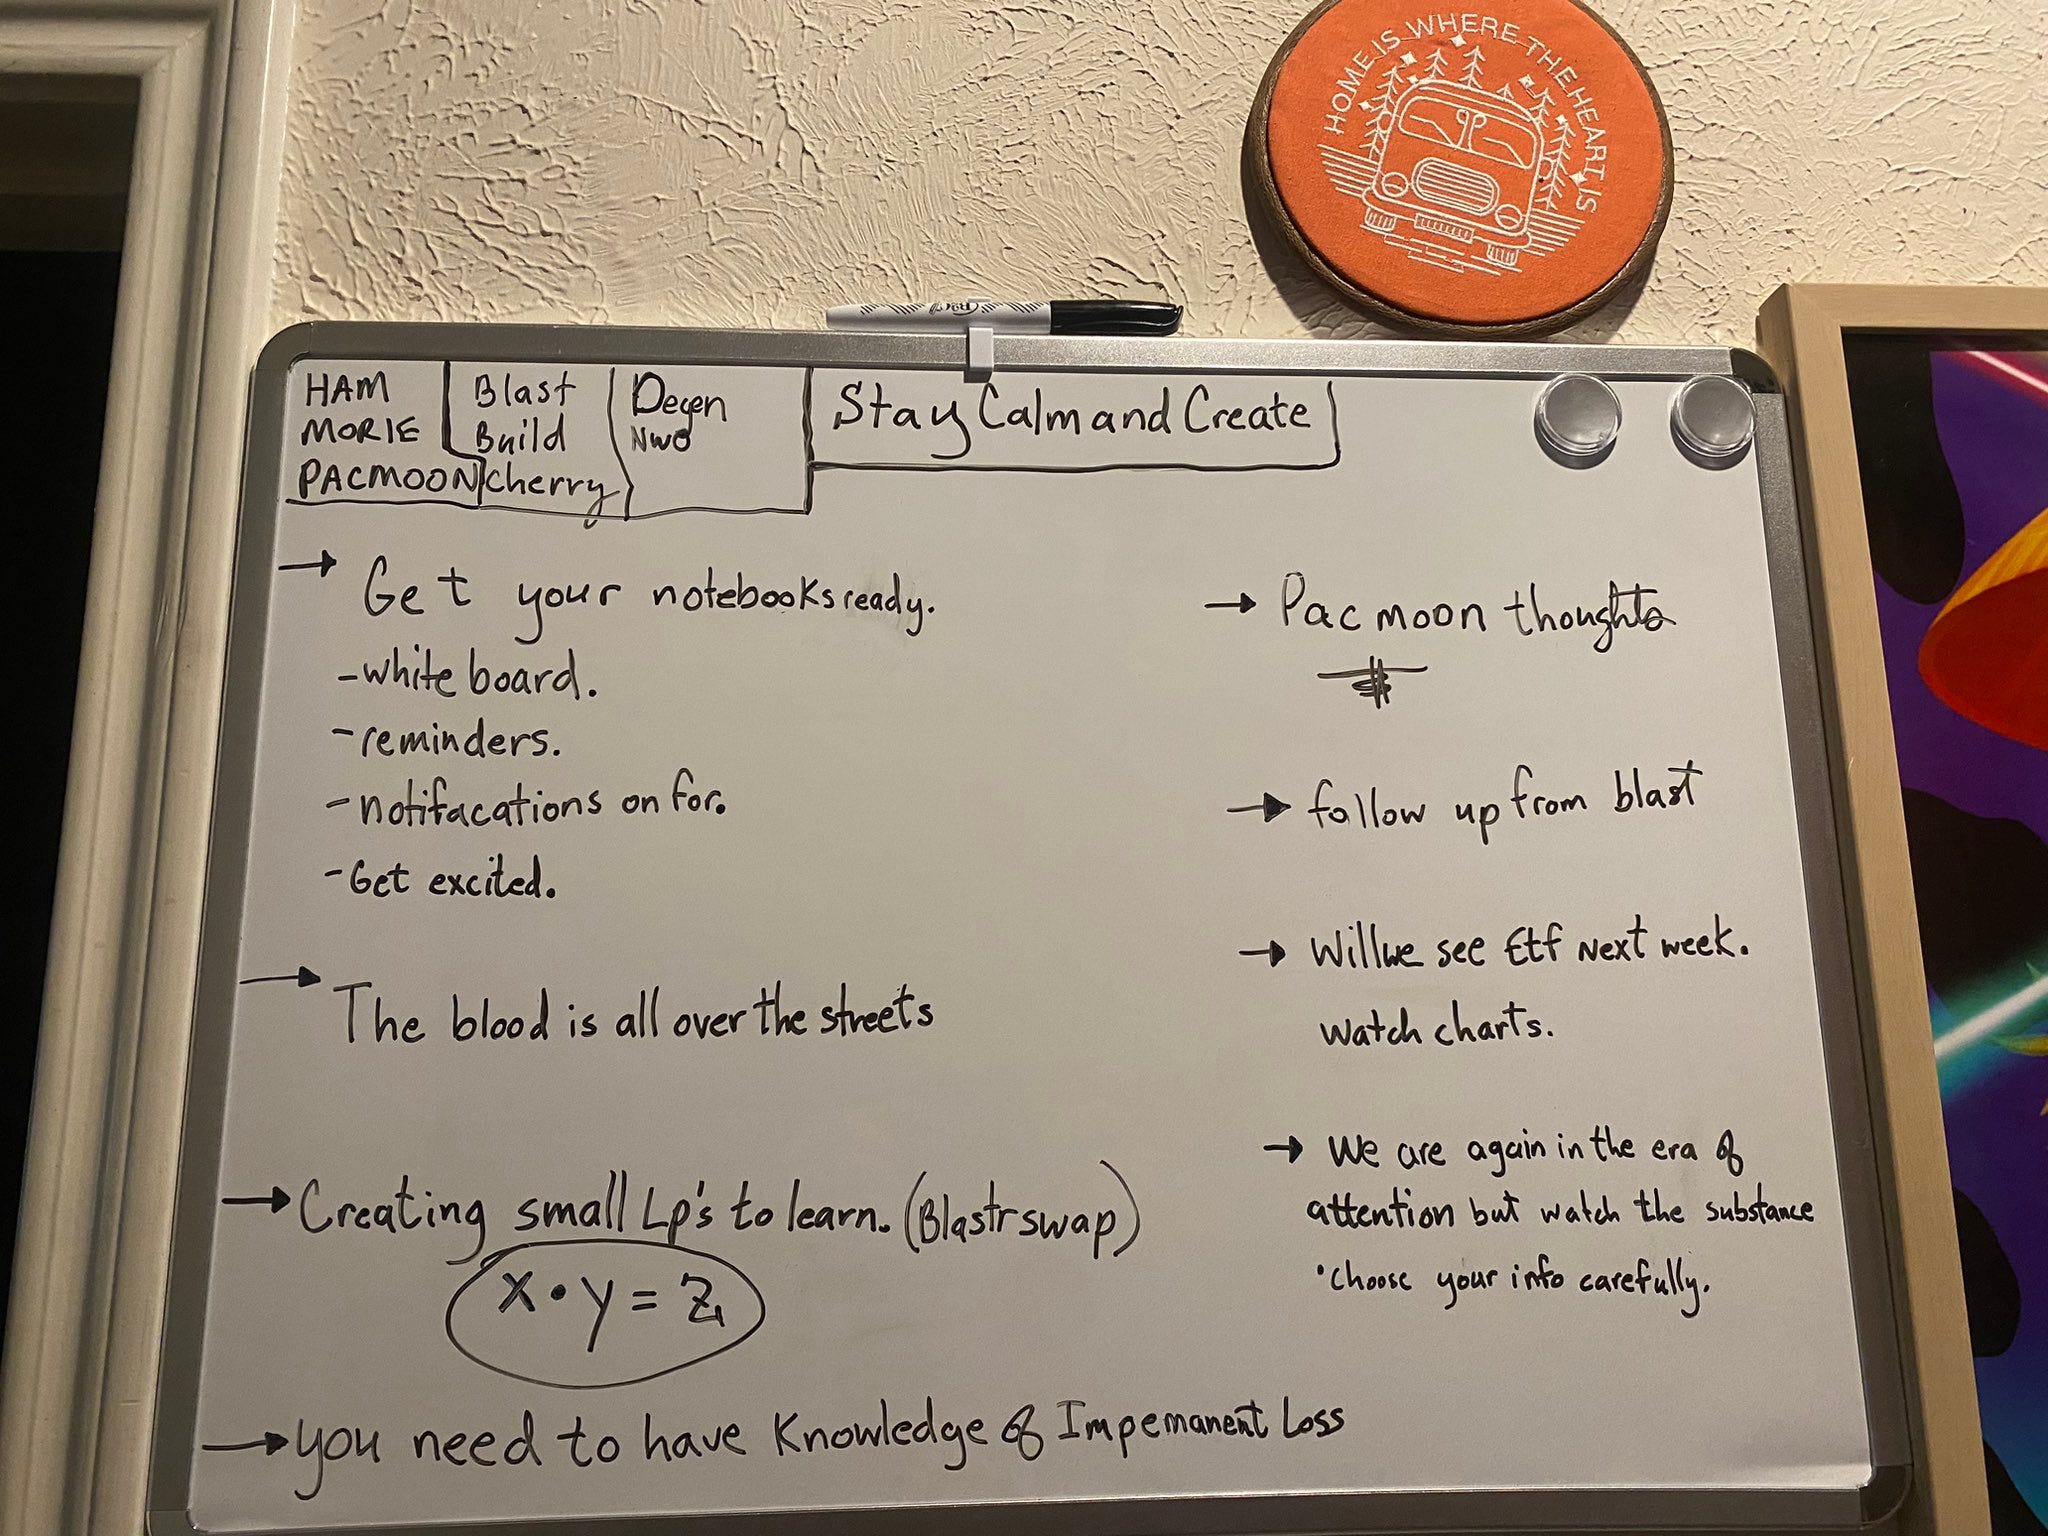 HOME IS WHERE THE HEART IS
HAM
MORIE
PACMOON
Blast
Build
cherry
Degen
NWO
Stay Calm and Create
→ Get your notebooks ready.
- white board.
- reminders.
- notifacations on for.
- Get excited.
→ The blood is all over the streets
→ Creating small Lp's to learn. (Blastrswap)
x • y = z
→ you need to have Knowledge of Impemanent Loss
→ Pac moon thoughts
→ follow up from blast
→ Will we see Etf Next week.
watch charts.
→ We are again in the era of
attention but watch the substance
• Choose your info carefully.